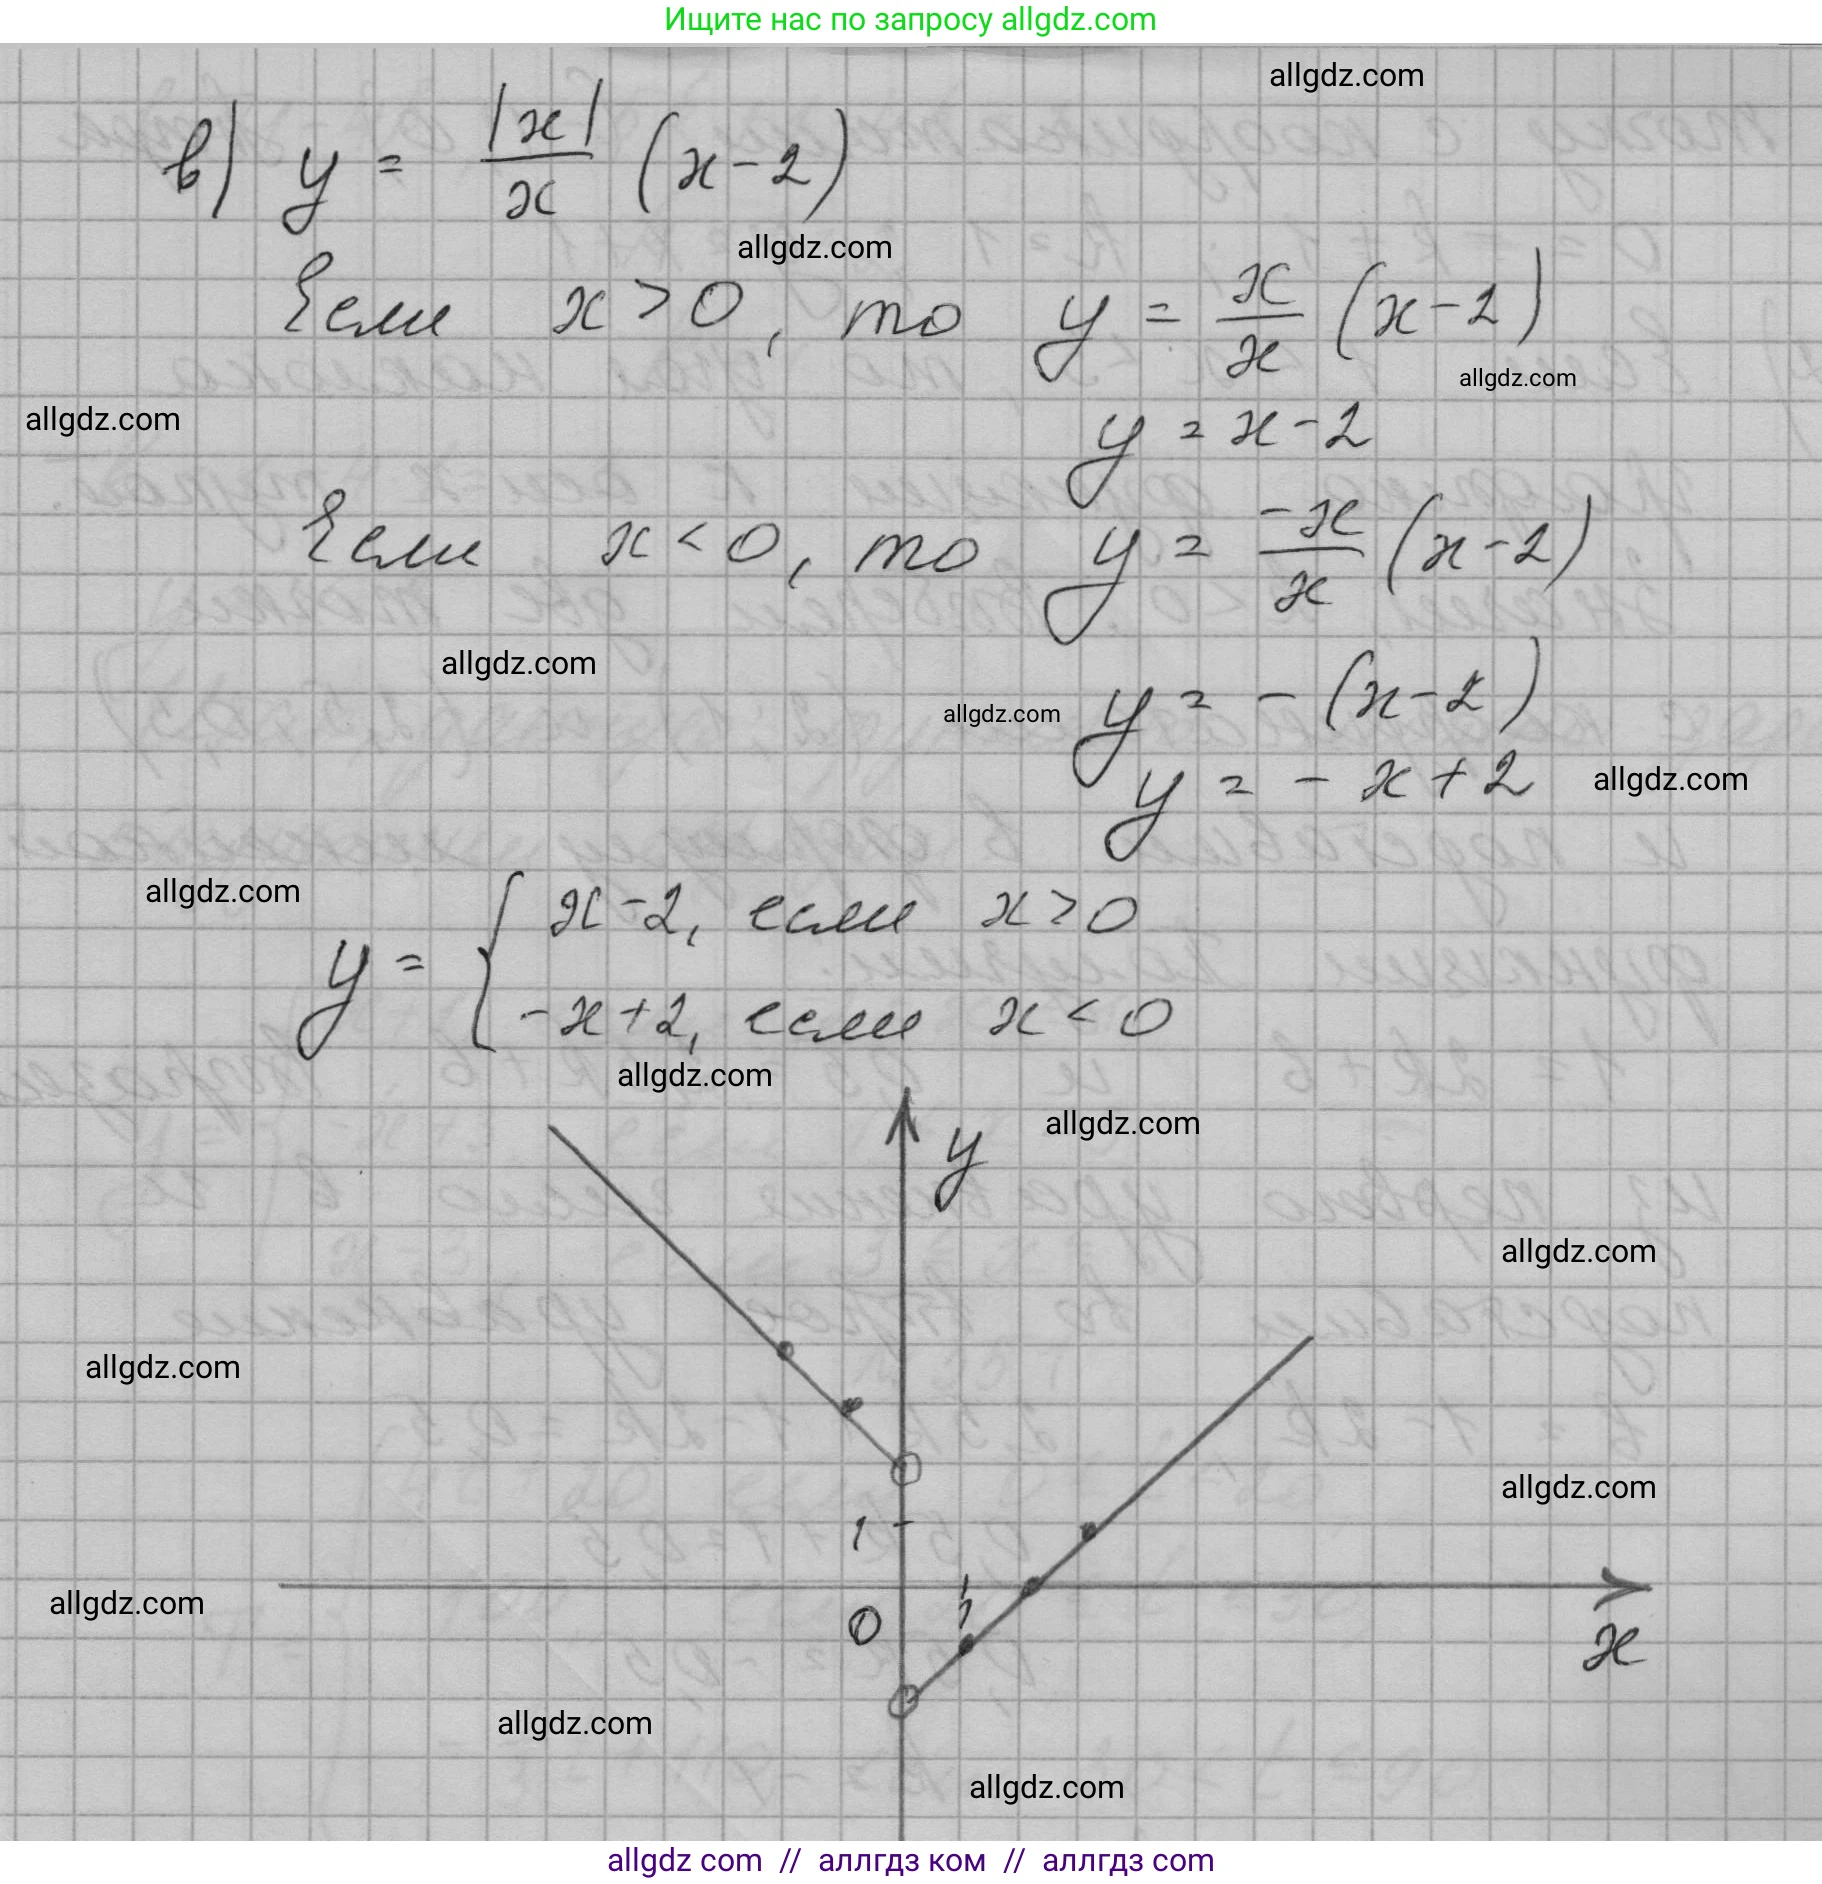 Ищите нас по запросу allgdz.com
allgdz.com
в) y = |x|/x (x-2)
allgdz.com
Если x > 0, то y = x/x (x-2)
allgdz.com
allgdz.com
y = x-2
Если x < 0, то y = -x/x (x-2)
allgdz.com
allgdz.com
y = -(x-2)
y = -x+2
allgdz.com
allgdz.com
y = { x-2, если x > 0
-x+2, если x < 0
allgdz.com
allgdz.com
y
allgdz.com
allgdz.com
allgdz.com
1
1
allgdz.com
0
x
allgdz.com
allgdz.com
allgdz com // аллгдз ком // аллгдз com